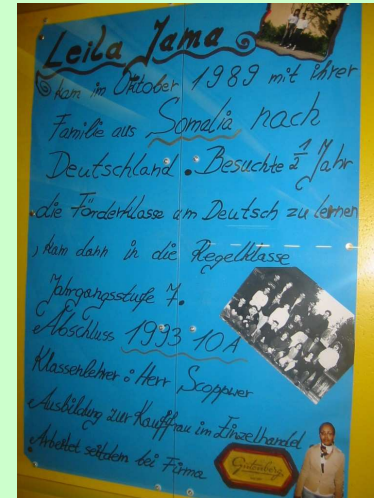 Leila Jama
kam im Oktober 1989 mit ihrer
Familie aus Somalia nach
Deutschland. Besuchte 1/2 Jahr
die Förderklasse um Deutsch zu lernen
, kam dann in die Regelklasse
Jahrgangsstufe 7.
Abschluss 1993 10A
Klassenlehrer: Herr
Ausbildung zur Kauffrau im Einzelhandel
Arbeitet seitdem bei Firma
Gutenberg